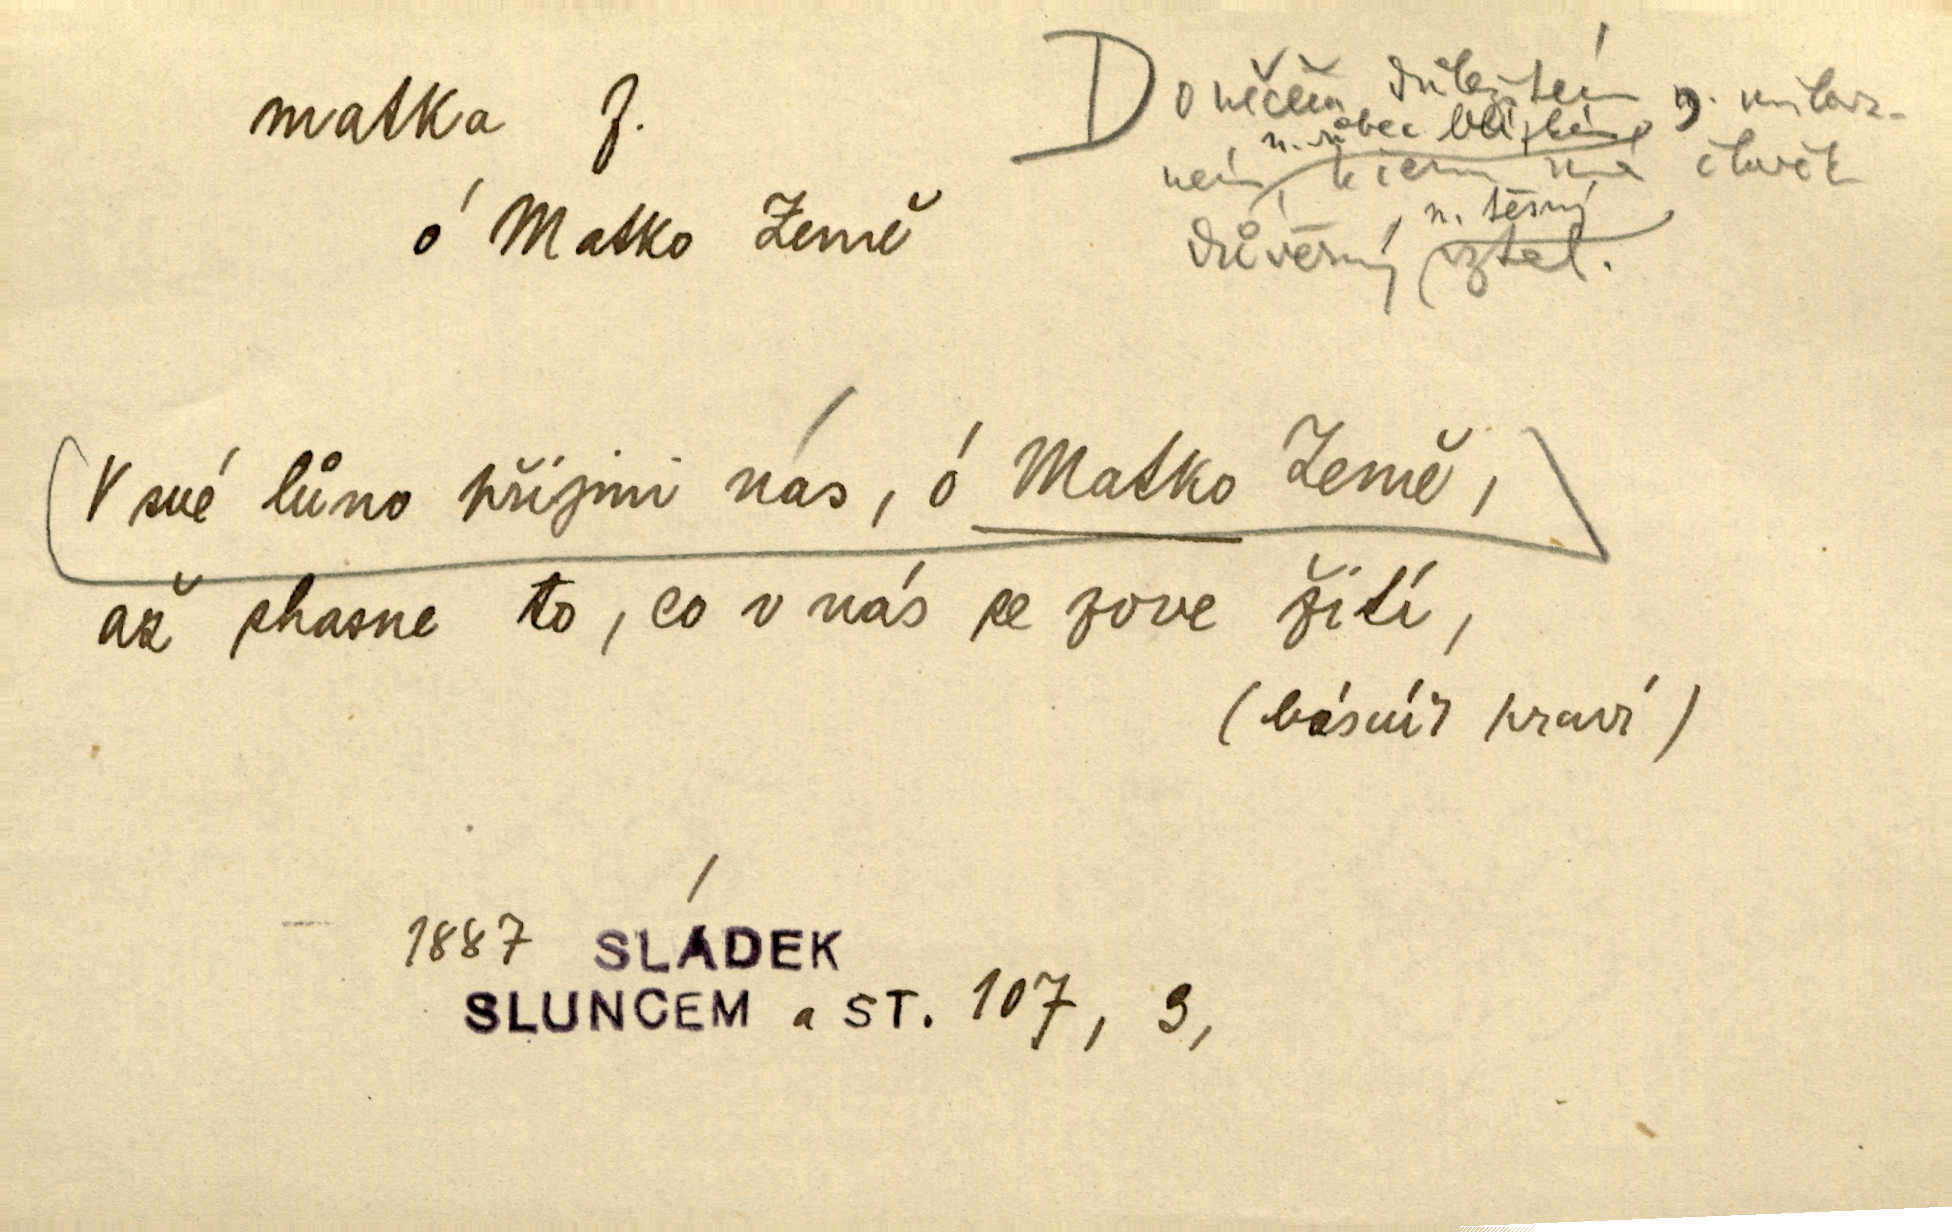 matka f.
ó Matko Země
D o něčem důležitém n. milova-
n. vůbec blízkém
ném, k čemu má člověk
n. těsný
důvěrný vztah.
V své lůno přijmi nás, ó Matko Země,
až shasne to, co v nás se zove žití,
(básník praví)
1887 SLÁDEK
SLUNCEM a ST. 107, 3,